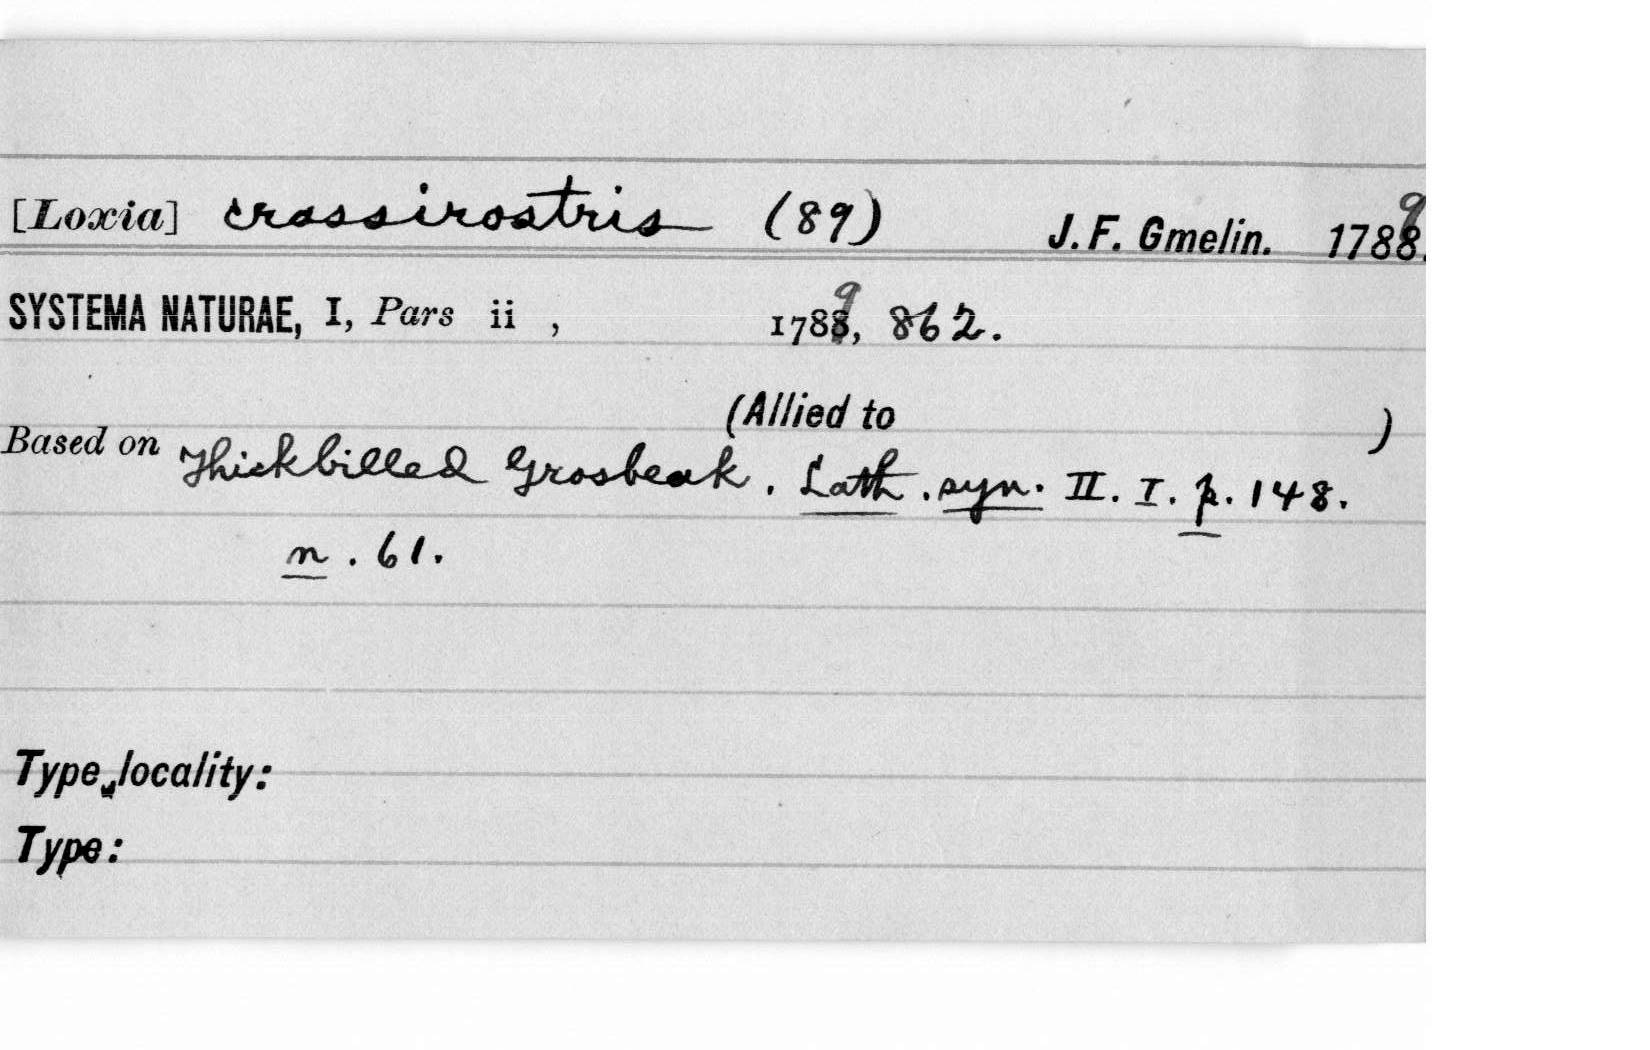 [Loxia] crassirostris (89) J. F. Gmelin. 1789.
SYSTEMA NATURAE, I, Pars ii , 1789, 862.
(Allied to )
Based on Thickbilled Grosbeak. Lath. syn. II. I. p. 148.
n. 61.
Type locality:
Type: